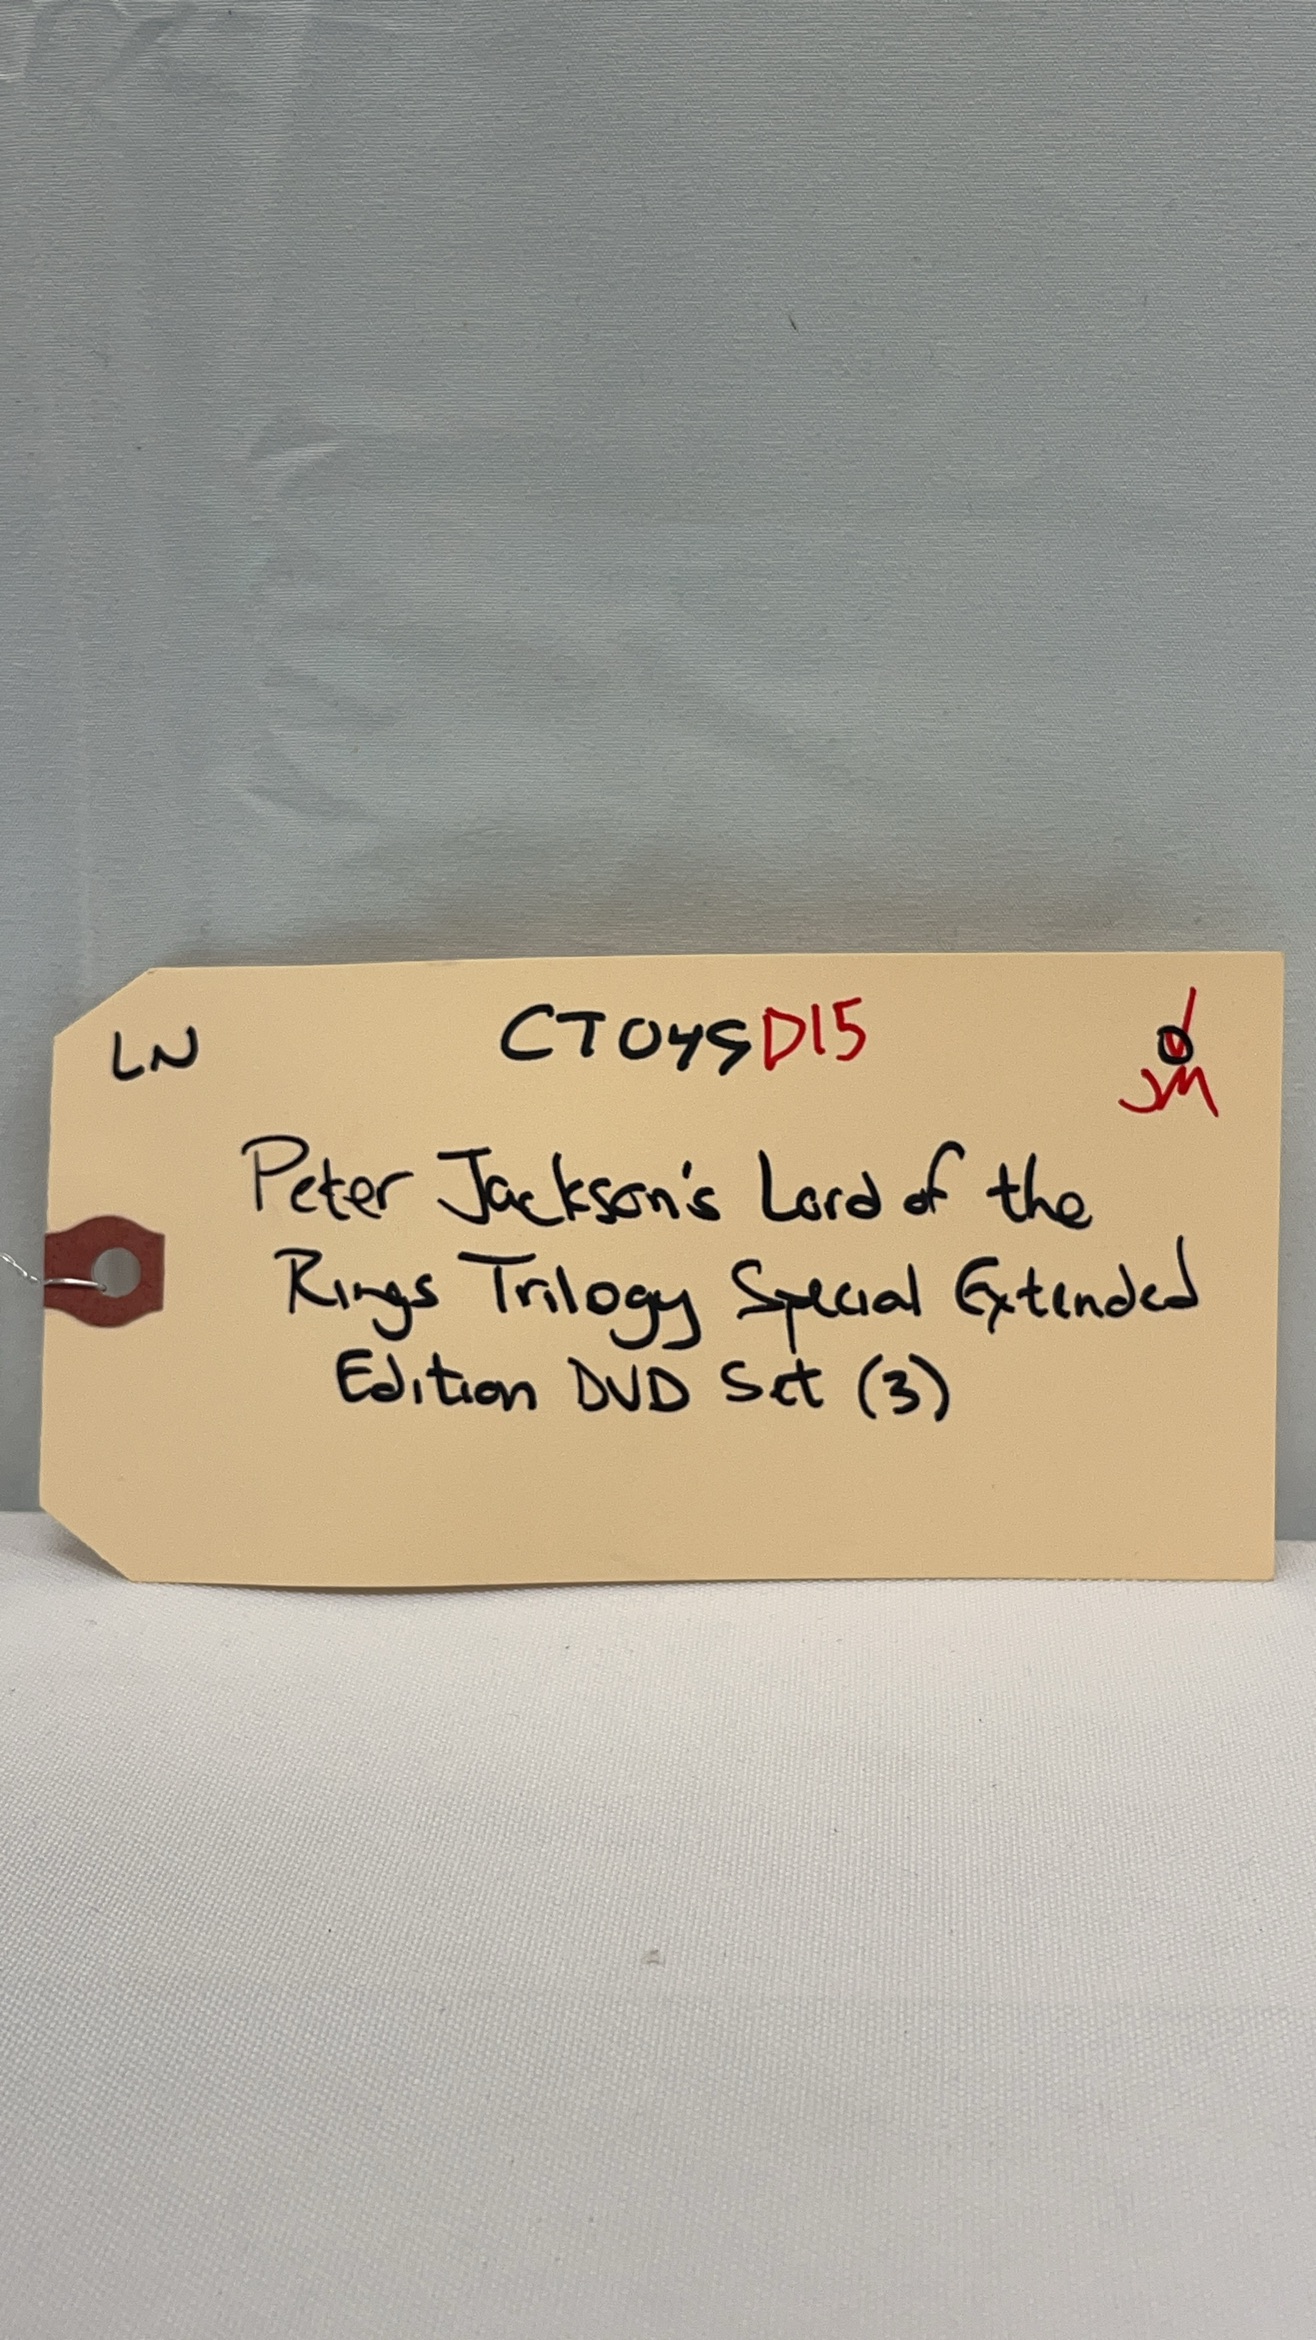 LN CTOYSD15
JM
Peter Jackson's Lord of the
Rings Trilogy Special Extended
Edition DVD Set (3)